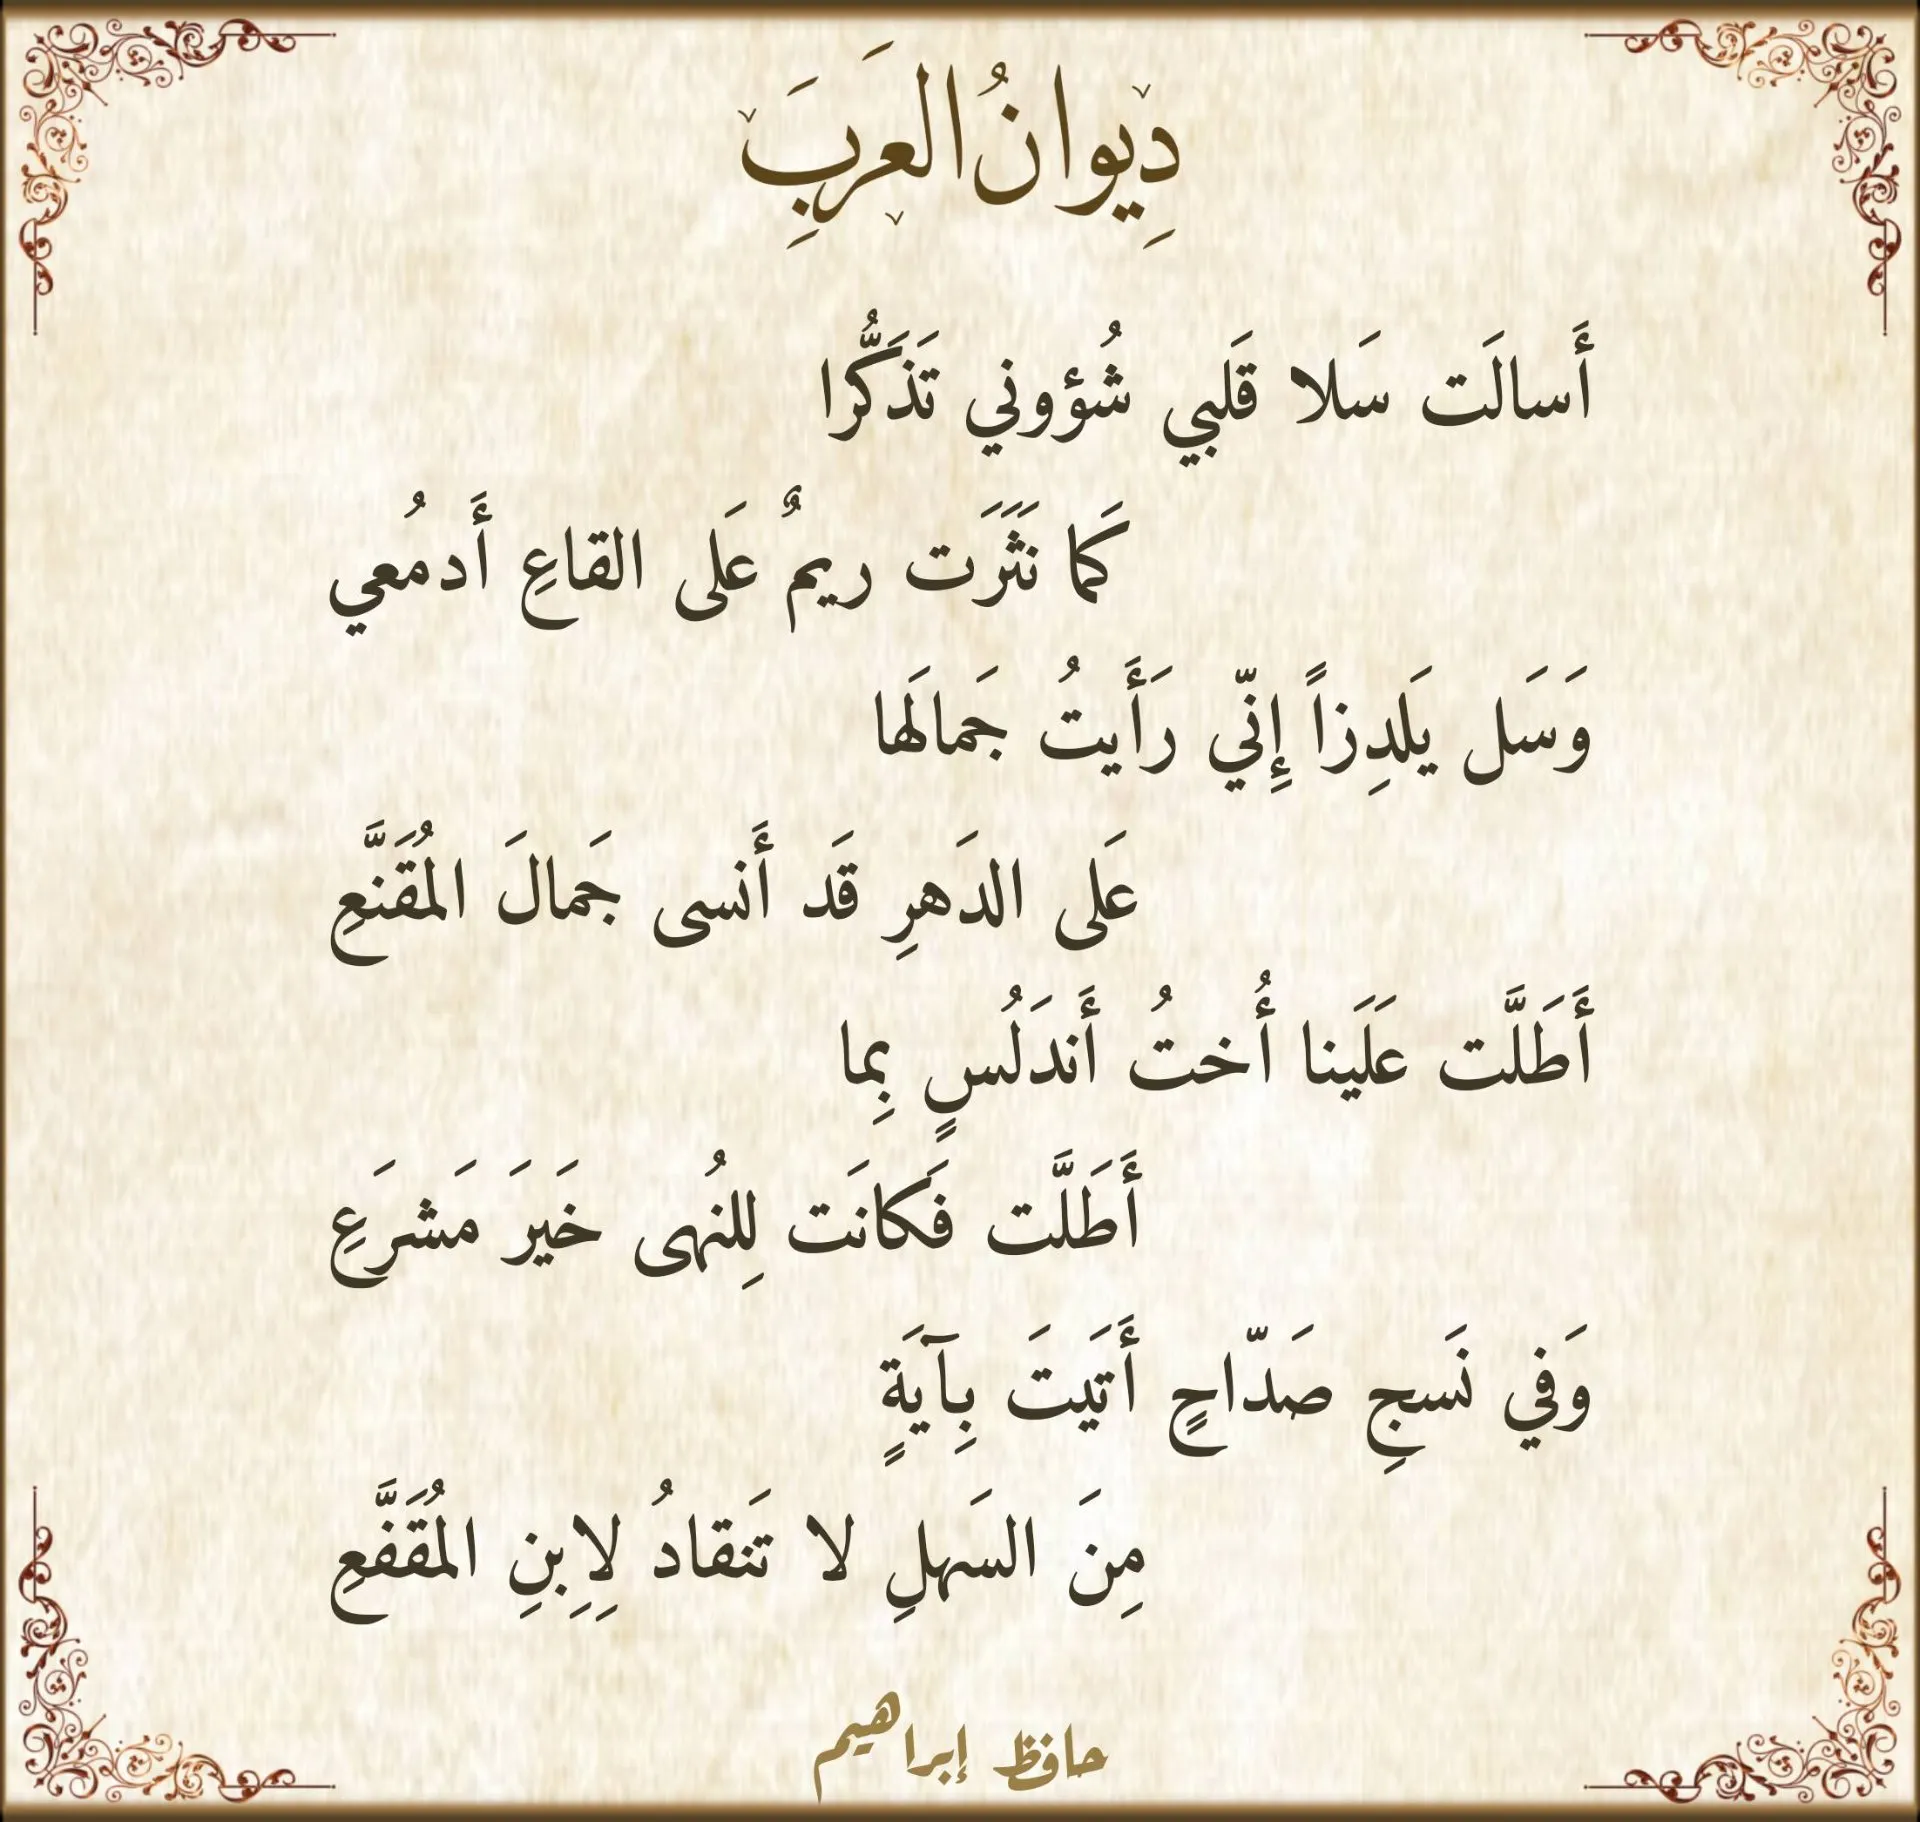 دِيوانُ العَرَبَِ
أَسالَت سَلا قَلبي شُؤوني تَذَكُّرا
كَما نَثَرَت ريمٌ عَلى القاعِ أَدمُعي
وَسَل يَلدِزاً إِنّي رَأَيتُ جَمالَها
عَلى الدَهرِ قَد أَنسى جَمالَ المُقَنَّعِ
أَطَلَّت عَلَينا أُختُ أَندَلُسٍ بِما
أَطَلَّت فَكانَت لِلنُهى خَيرَ مَشرَعِ
وَفي نَسجِ صَدّاحٍ أَتَيتَ بِآيَةٍ
مِنَ السَهلِ لا تَنقادُ لِاِبنِ المُقَفَّعِ
حافظ إبراهيم